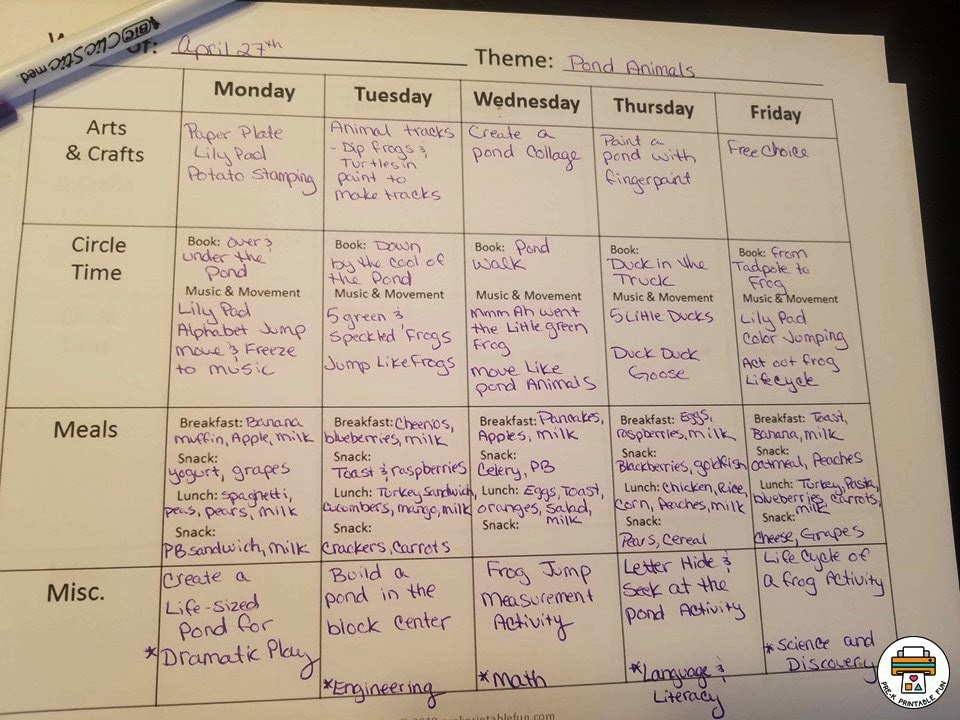 BIC Clic Stic med
of: April 27th
Theme: Pond Animals
Monday
Tuesday
Wednesday
Thursday
Friday
Arts
& Crafts
Paper Plate
Lily Pad
Potato Stamping
Animal tracks
- Dip frogs &
Turtles in
paint to
make tracks
Create a
pond collage
Paint a
pond with
fingerpaint
Free Choice
Circle
Time
Book: Over &
under the
Pond
Music & Movement
Lily Pad
Alphabet Jump
move & Freeze
to music
Book: Down
by the cool of
the Pond
Music & Movement
5 green &
Speckled Frogs
Jump Like Frogs
Book: Pond
Walk
Music & Movement
mmm Ah went
the Little green
frog
move Like
pond Animals
Book:
Duck in the
Truck
Music & Movement
5 Little Ducks
Duck Duck
Goose
Book: from
Tadpole to
Frog
Music & Movement
Lily Pad
Color Jumping
Act out frog
Lifecycle
Meals
Breakfast: Banana
muffin, Apple, milk
Snack:
yogurt, grapes
Lunch: spaghetti,
peas, pears, milk
Snack:
PB sandwich, milk
Breakfast: Cheerios,
blueberries, milk
Snack:
Toast & raspberries
Lunch: Turkey sandwich,
cucumbers, mango, milk
Snack:
Crackers, Carrots
Breakfast: Pancakes,
Apples, milk
Snack:
Celery, PB
Lunch: Eggs, Toast,
oranges, Salad,
milk
Snack:
Breakfast: Eggs,
raspberries, milk
Snack:
Blackberries, goldfish
Lunch: Chicken, Rice,
Corn, Peaches, milk
Snack:
Pears, Cereal
Breakfast: Toast,
Banana, milk
Snack:
oatmeal, Peaches
Lunch: Turkey, Pasta,
blueberries, carrots,
milk
Snack:
Cheese, Grapes
Misc.
Create a
Life-Sized
Pond for
*Dramatic Play
Build a
pond in the
block center
*Engineering
Frog Jump
Measurement
Activity
*Math
Letter Hide &
Seek at the
pond Activity
*Language &
Literacy
Life Cycle of
a frog Activity
*Science and
Discovery
PRE-K PRINTABLE FUN